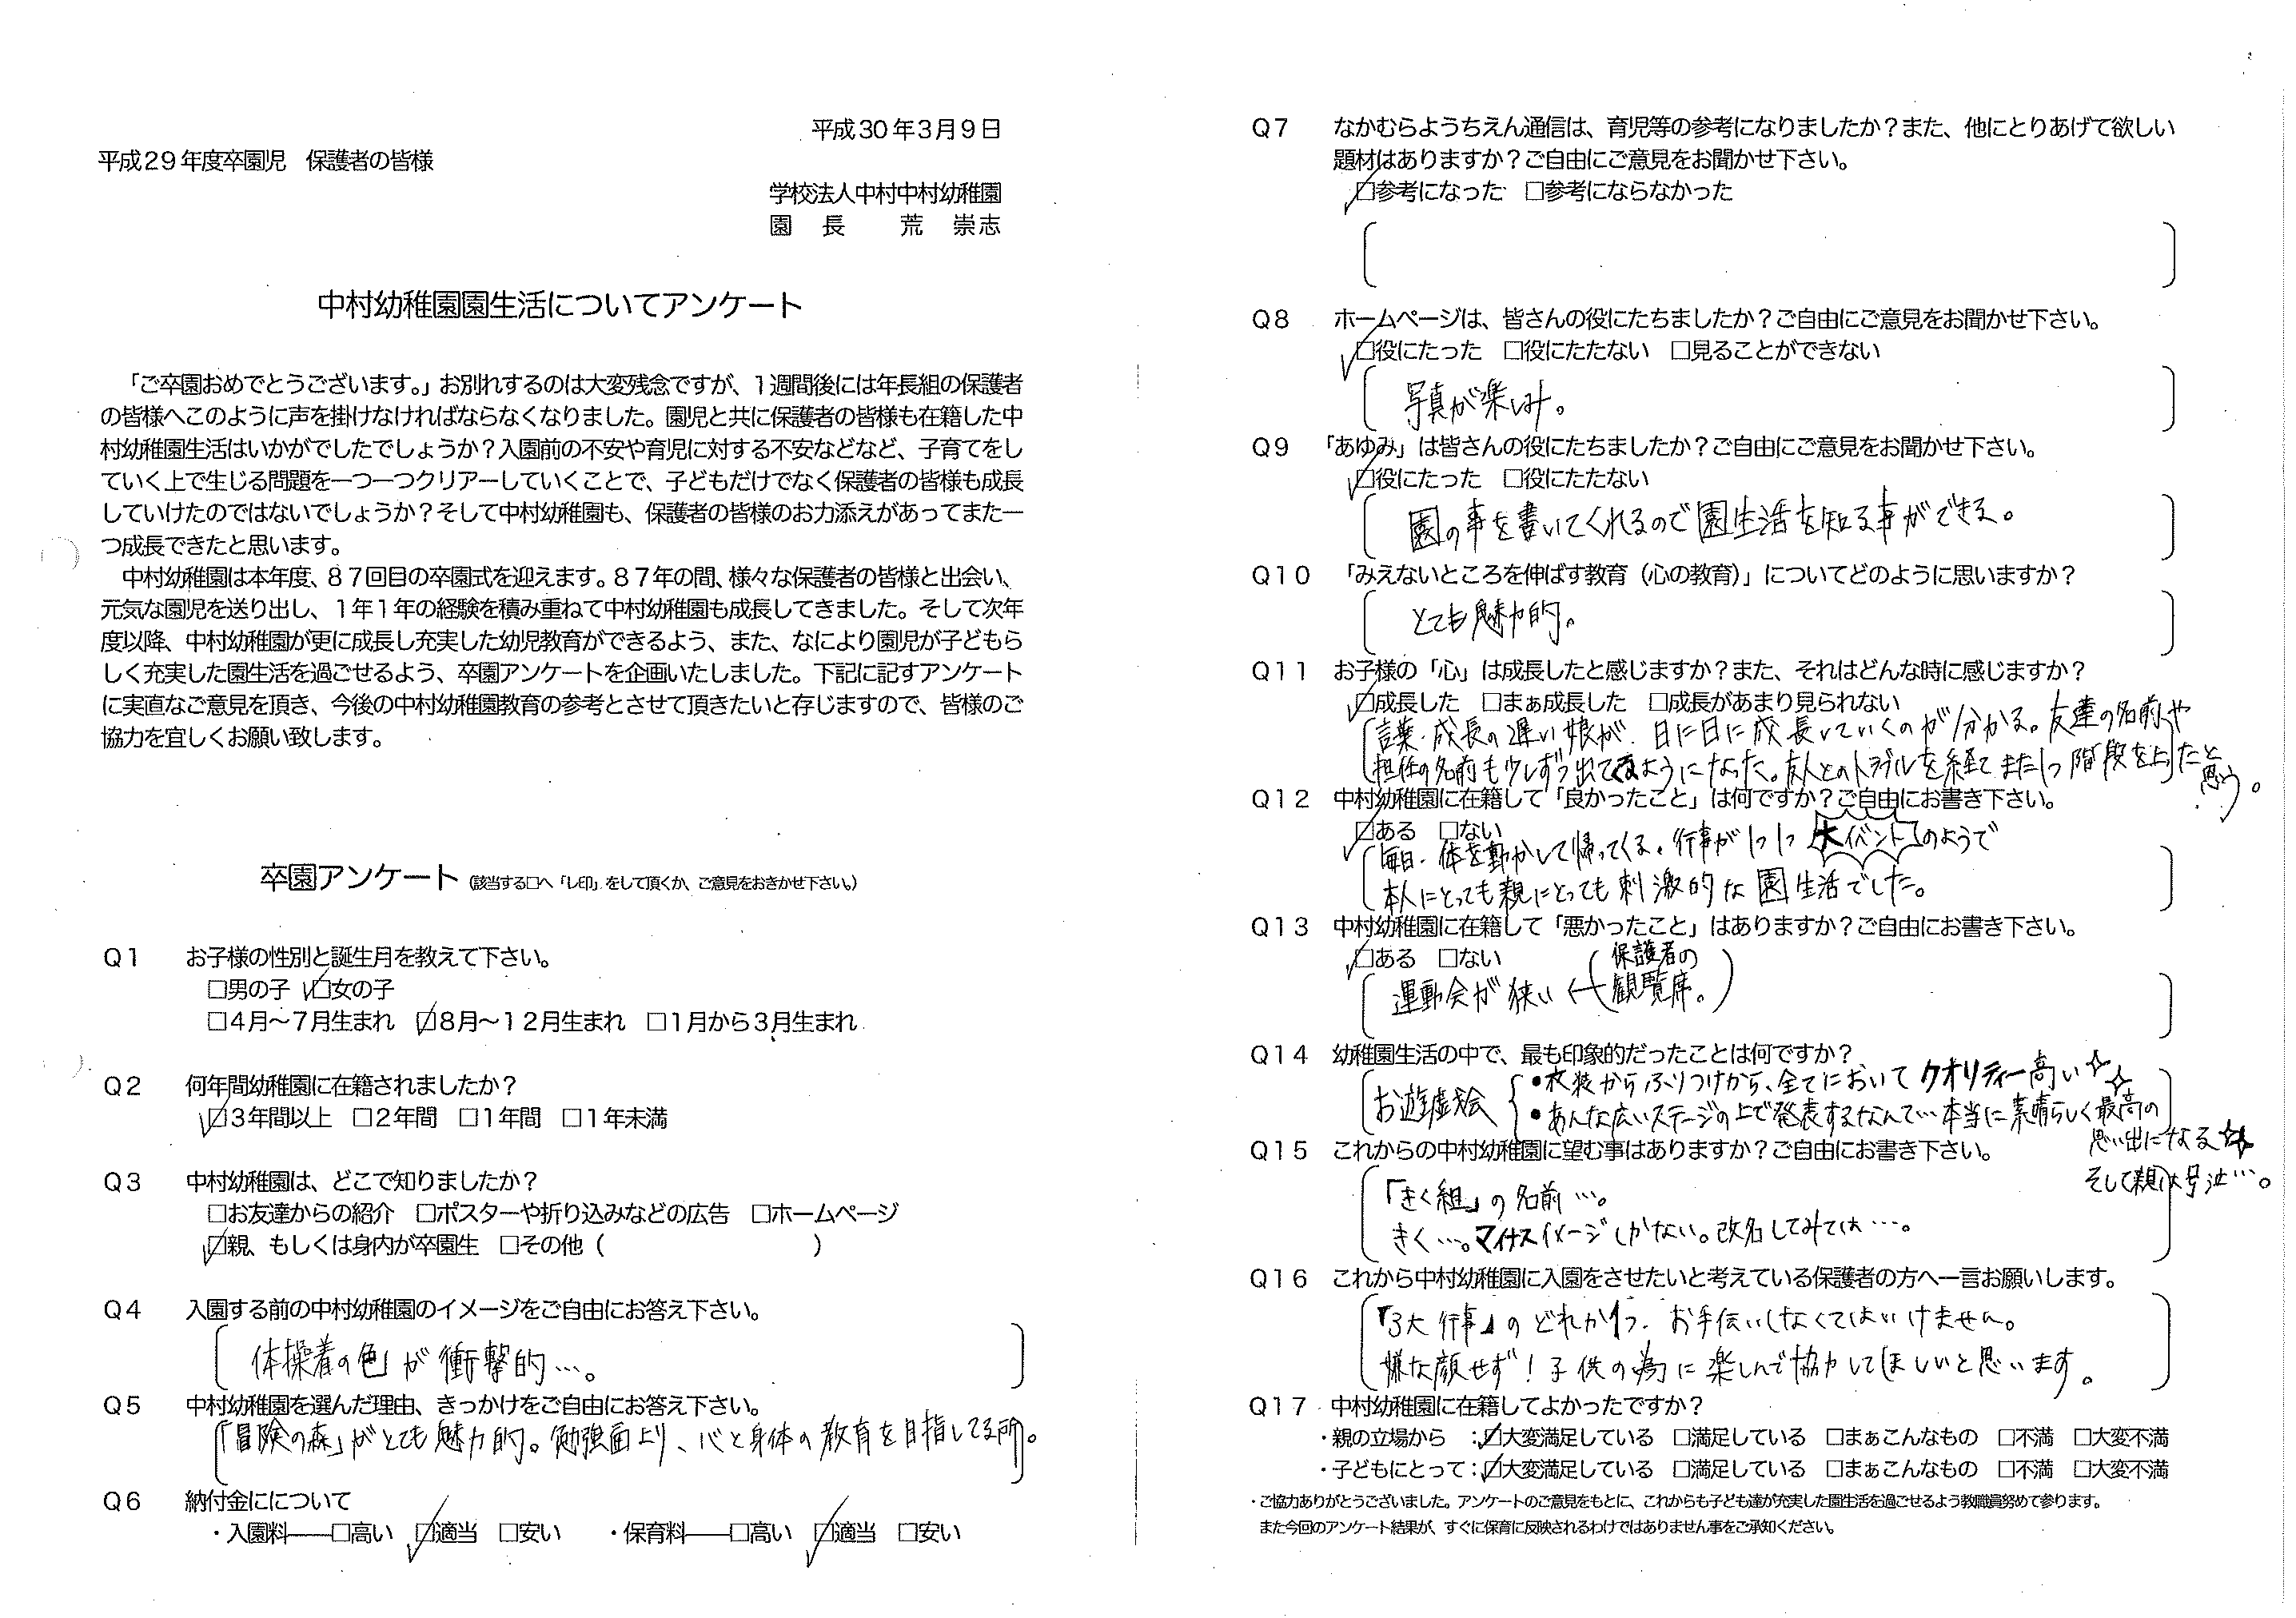 平成30年3月9日
平成29年度卒園児　保護者の皆様
学校法人中村中村幼稚園
園　長　　荒　崇志
中村幼稚園園生活についてアンケート
「ご卒園おめでとうございます。」お別れするのは大変残念ですが、1週間後には年長組の保護者
の皆様へこのように声を掛けなければならなくなりました。園児と共に保護者の皆様も在籍した中
村幼稚園生活はいかがでしたでしょうか？入園前の不安や育児に対する不安などなど、子育てをし
ていく上で生じる問題を一つ一つクリアーしていくことで、子どもだけでなく保護者の皆様も成長
していけたのではないでしょうか？そして中村幼稚園も、保護者の皆様のお力添えがあってまた一
つ成長できたと思います。
中村幼稚園は本年度、87回目の卒園式を迎えます。87年の間、様々な保護者の皆様と出会い、
元気な園児を送り出し、1年1年の経験を積み重ねて中村幼稚園も成長してきました。そして次年
度以降、中村幼稚園が更に成長し充実した幼児教育ができるよう、また、なにより園児が子どもら
しく充実した園生活を過ごせるよう、卒園アンケートを企画いたしました。下記に記すアンケート
に実直なご意見を頂き、今後の中村幼稚園教育の参考とさせて頂きたいと存じますので、皆様のご
協力を宜しくお願い致します。
卒園アンケート（該当する□へ「レ印」をして頂くか、ご意見をおきかせ下さい。）
Q1　お子様の性別と誕生月を教えて下さい。
□男の子　☑女の子
□4月～7月生まれ　☑8月～12月生まれ　□1月から3月生まれ
Q2　何年間幼稚園に在籍されましたか？
☑3年間以上　□2年間　□1年間　□1年未満
Q3　中村幼稚園は、どこで知りましたか？
□お友達からの紹介　□ポスターや折り込みなどの広告　□ホームページ
☑親、もしくは身内が卒園生　□その他（　　　　　　　　　）
Q4　入園する前の中村幼稚園のイメージをご自由にお答え下さい。
体操着の色が衝撃的…。
Q5　中村幼稚園を選んだ理由、きっかけをご自由にお答え下さい。
「冒険の森」がとても魅力的。勉強面より、心と身体の教育を目指してる所。
Q6　納付金にについて
・入園料――□高い　☑適当　□安い　　・保育料――□高い　☑適当　□安い
Q7　なかむらようちえん通信は、育児等の参考になりましたか？また、他にとりあげて欲しい
題材はありますか？ご自由にご意見をお聞かせ下さい。
☑参考になった　□参考にならなかった
Q8　ホームページは、皆さんの役にたちましたか？ご自由にご意見をお聞かせ下さい。
☑役にたった　□役にたたない　□見ることができない
写真が楽しみ。
Q9　「あゆみ」は皆さんの役にたちましたか？ご自由にご意見をお聞かせ下さい。
☑役にたった　□役にたたない
園の事を書いてくれるので園生活を知る事ができる。
Q10　「みえないところを伸ばす教育（心の教育）」についてどのように思いますか？
とても魅力的。
Q11　お子様の「心」は成長したと感じますか？また、それはどんな時に感じますか？
☑成長した　□まぁ成長した　□成長があまり見られない
言葉・成長の遅い娘が、日に日に成長していくのが分かる。友達の名前や
担任の名前も少しずつ出てくるようになった。友人とのトラブルを経てまた1つ階段を上がったと
思う。
Q12　中村幼稚園に在籍して「良かったこと」は何ですか？ご自由にお書き下さい。
☑ある　□ない
毎日、体を動かして帰ってくる。行事が1つ1つ大イベントのようで
本人にとっても親にとっても刺激的な園生活でした。
Q13　中村幼稚園に在籍して「悪かったこと」はありますか？ご自由にお書き下さい。
☑ある　□ない
運動会が狭い←（保護者の
観覧席。）
Q14　幼稚園生活の中で、最も印象的だったことは何ですか？
お遊戯会
●衣装からふりつけから、全てにおいてクオリティー高い☆☆
●あんな広いステージの上で発表するなんて…本当に素晴らしく最高の
思い出になる☆☆
そして親は大号泣…。
Q15　これからの中村幼稚園に望む事はありますか？ご自由にお書き下さい。
「きく組」の名前…。
きく…。マイナスイメージしかない。改名してみては…。
Q16　これから中村幼稚園に入園をさせたいと考えている保護者の方へ一言お願いします。
『3大行事』のどれか1つ、お手伝いしなくてはいけません。
嫌な顔せず！子供の為に楽しんで協力してほしいと思います。
Q17　中村幼稚園に在籍してよかったですか？
・親の立場から　：☑大変満足している　□満足している　□まぁこんなもの　□不満　□大変不満
・子どもにとって：☑大変満足している　□満足している　□まぁこんなもの　□不満　□大変不満
・ご協力ありがとうございました。アンケートのご意見をもとに、これからも子ども達が充実した園生活を過ごせるよう教職員努めて参ります。
また今回のアンケート結果が、すぐに保育に反映されるわけではありません事をご承知ください。